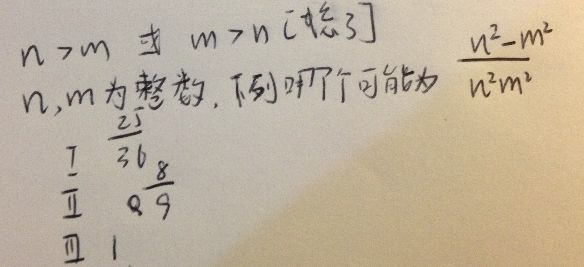 n>m 或 m>n [忘了]
n,m为整数,下列哪个可能为 n²-m²/n²m²
I 25/36
II 8/9
III 1